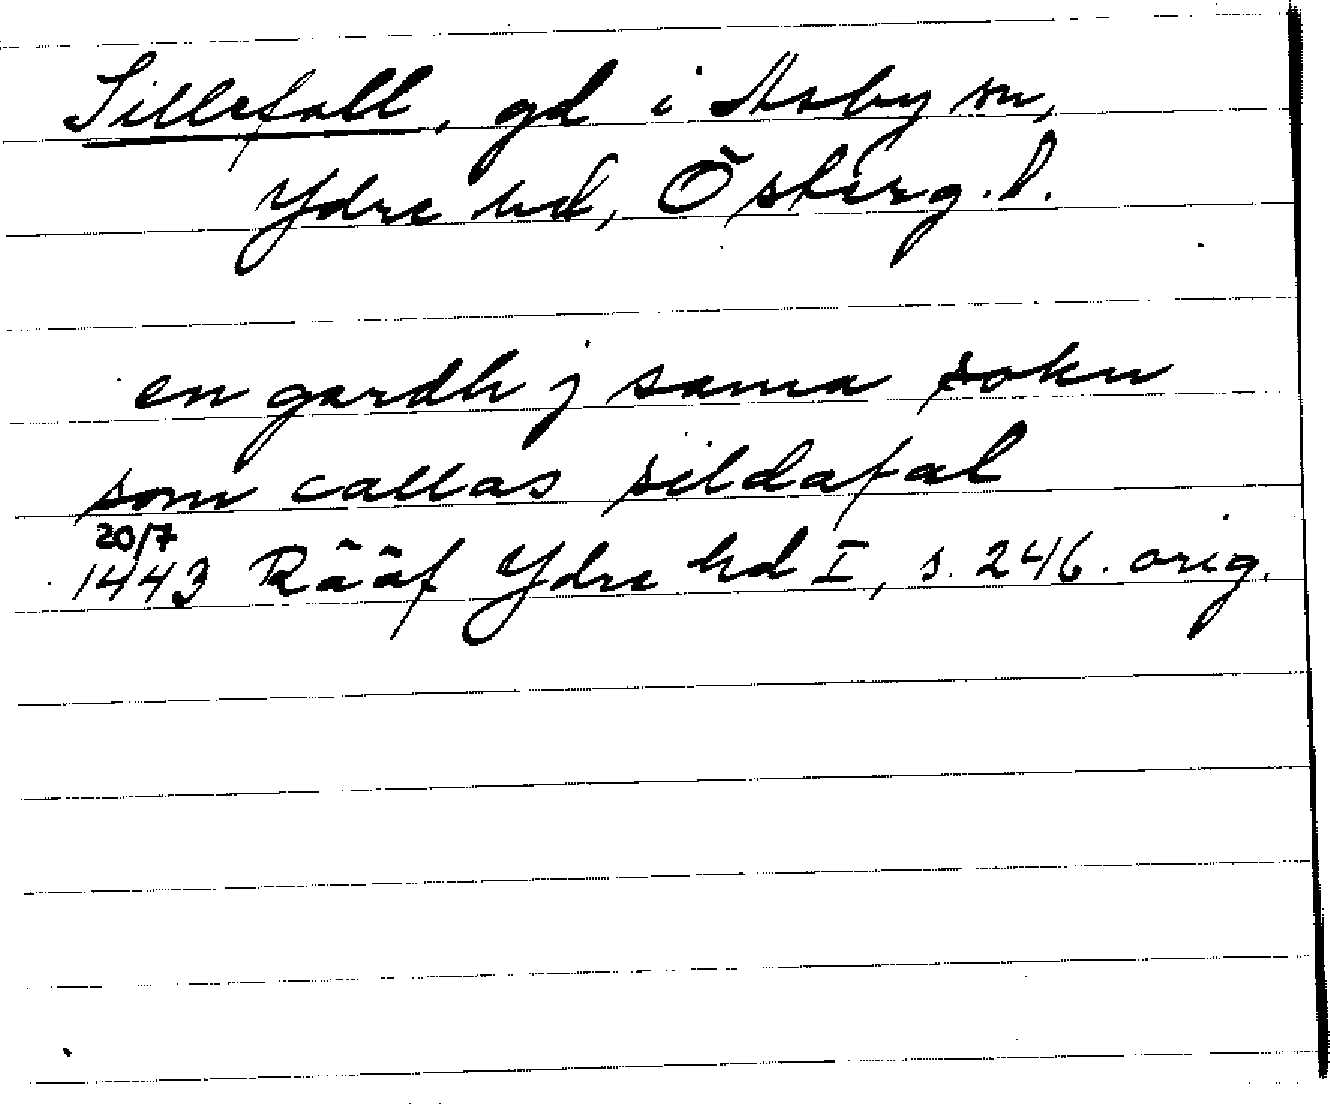 Sillefall, gd i Asby sn,
Ydre hd, Österg. l.
en gardh j sama sokn
som callas sildafal
20/7
1443 Rääf Ydre hd I, s. 246. orig.